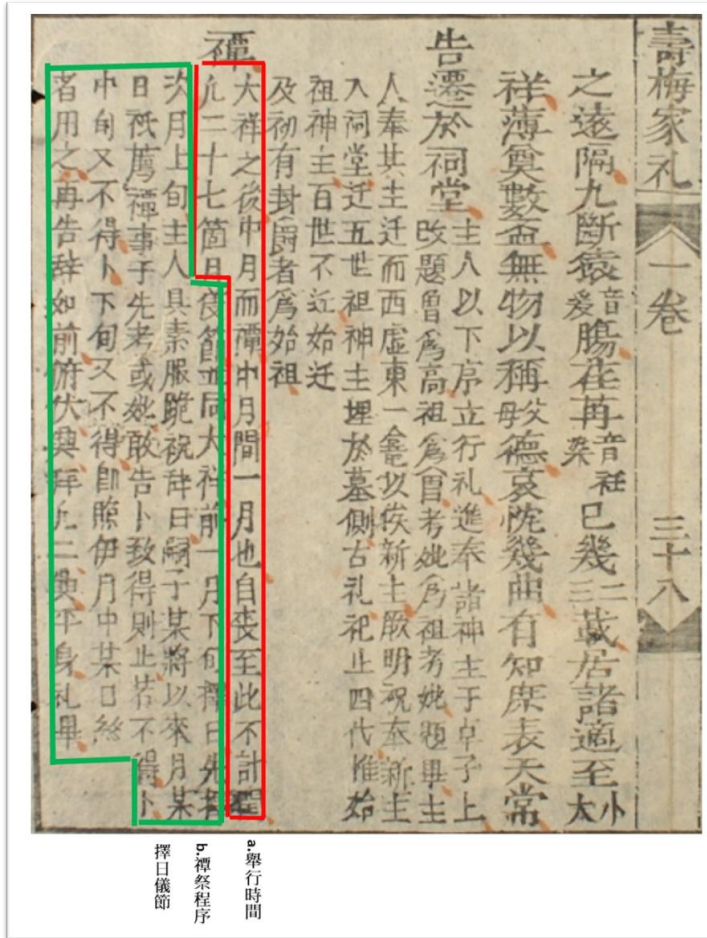 壽梅家礼 一卷 三十八
之遠隔九斷猿音爰腸在苒音衽染已幾二三蔵居諸適至小大
祥薄奠數盃無物以稱父母德哀忱幾曲有知庶表天常
告遷於祠堂主人以下序立行礼進奉諸神主于卓子上
改題曾爲高祖爲曾考妣爲祖考妣題畢主
人奉其主迁而西虛東一龕以俟新主厥明祝奉新主
入祠堂迁五世祖神主埋於墓側古礼祀止四代惟始
祖神主百世不迁始迁
及初有封爵者爲始祖
禫
大祥之後中月而禫中月間一月也自喪至此不計閏
凢二十七箇月儀節並同大祥前一月下旬擇日先擇
次月上旬主人具素服跪祝辞曰嗣子某將以來月某
日祇薦禫事于先考或妣敢告卜致得則止若不得卜
中旬又不得卜下旬又不得卽照伊月中某日
者用之再告辞如前俯伏興拜凢二興平身礼畢
a.舉行時間
b.禫祭程序
擇日儀節